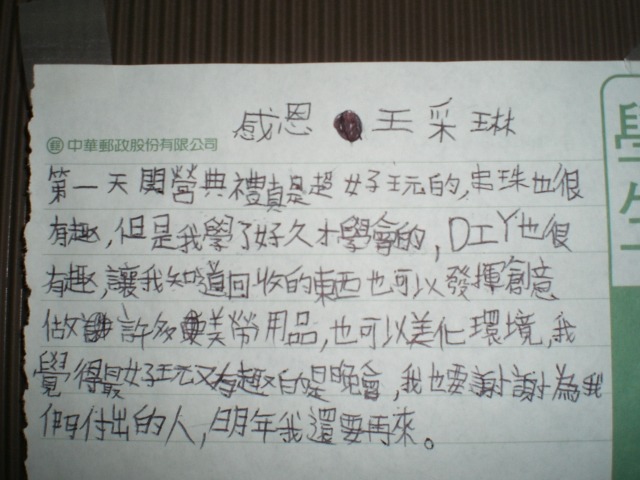 感恩 王采琳
中華郵政股份有限公司
第一天開營典禮真是超好玩的,串珠也很
有趣,但是我學了好久才學會的,DIY也很
有趣,讓我知道回收的東西也可以發揮創意
做許多美勞用品,也可以美化環境,我
覺得最好玩又有趣的是晚會,我也要謝謝為我
們付出的人,明年我還要再來。
學生